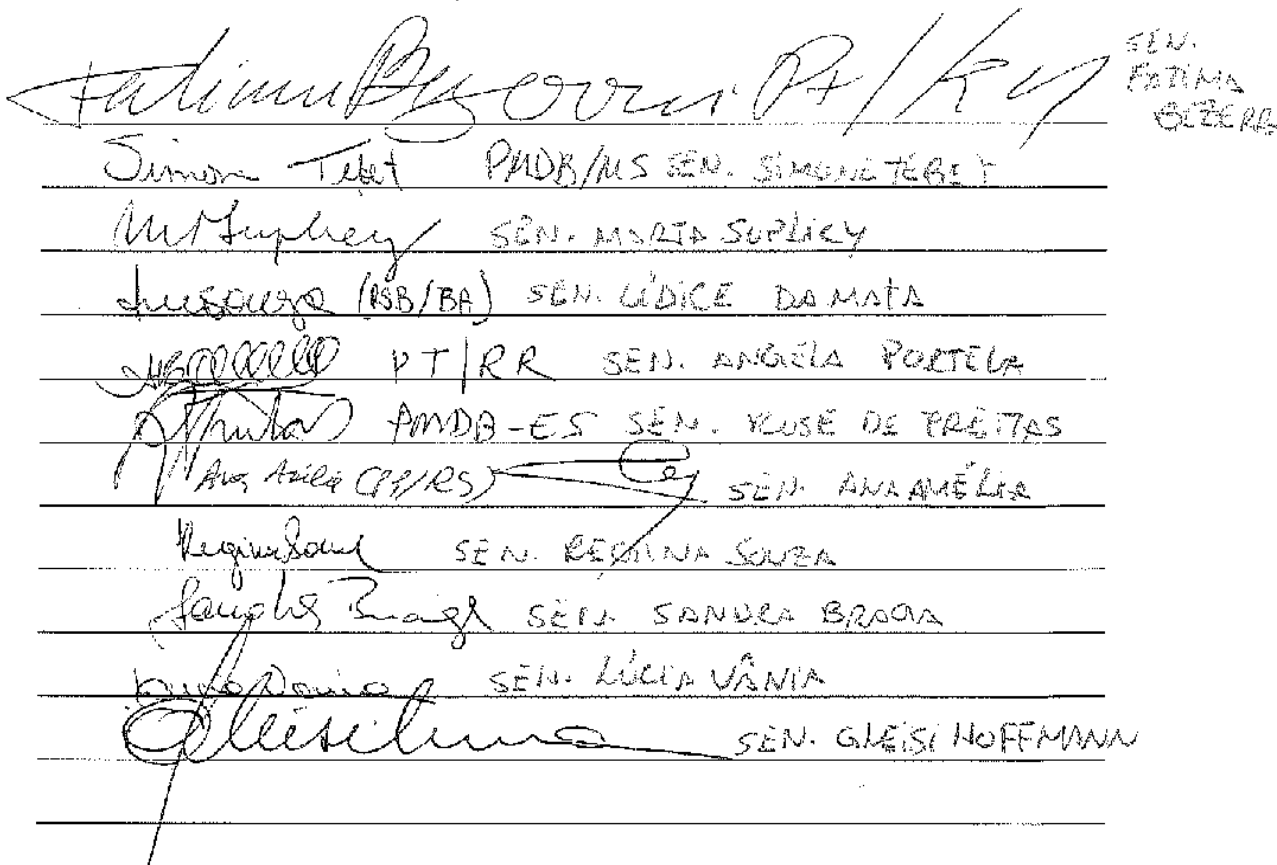 Fatima Bezerra PT/RN SEN. FATIMA BEZERRA
Simone Tebet PMDB/MS SEN. SIMONE TEBET
MtSuplicy SEN. MARTA SUPLICY
(PSB/BA) SEN. LÍDICE DA MATA
PT/RR SEN. ANGELA PORTELA
PMDB-ES SEN. ROSE DE FREITAS
Ana Amélia (PP/RS) SEN. ANA AMÉLIA
Regina Sousa SEN. REGINA SOUZA
Sandra Braga SEN. SANDRA BRAGA
Lúcia Vânia SEN. LÚCIA VÂNIA
SEN. GLEISI HOFFMANN